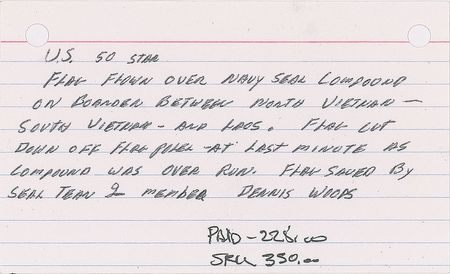 U.S. 50 STAR
FLAG FLOWN OVER NAVY SEAL COMPOUND
ON BOARDER BETWEEN NORTH VIETNAM -
SOUTH VIETNAM - AND LAOS. FLAG CUT
DOWN OFF FLAG POLE - AT LAST MINUTE AS
COMPOUND WAS OVER RUN. FLAG SAVED BY
SEAL TEAM 2 MEMBER DENNIS WOODS
PAID - 225.00
SELL 350.00